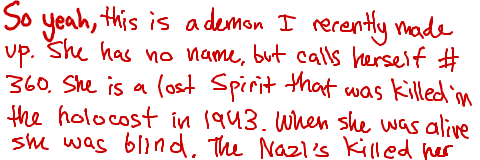 So yeah, this is a demon I recently made
up. She has no name, but calls herself #
360. She is a lost Spirit that was killed in
the holocost in 1943. When she was alive
she was blind. The Nazi's killed her